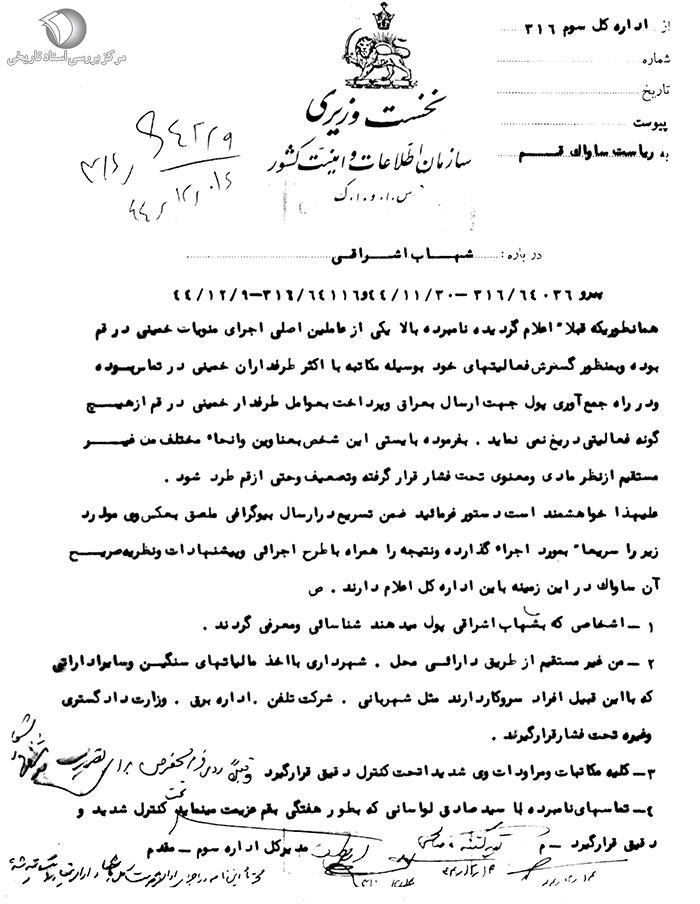 مرکز بررسی اسناد تاریخی
از اداره کل سوم ۳۱۶
شماره
تاریخ
پیوست
به ریاست ساواک قم
نخست وزیری
سازمان اطلاعات و امنیت کشور
س . ا . و . ا . ک
۳۱۶/
درباره : شهاب اشراقی
پیرو ۳۱۶/۶۴۰۳۶ –۴۴/۱۱/۳۰و۳۱۶/۶۴۱۱۶–۴۴/۱۲/۹
همانطوریکه قبلا" اعلام گردیده نامبرده بالا یکی از عاملین اصلی اجرای منویات خمینی در قم
بوده وبمنظور گسترش فعالیتهای خود بوسیله مکاتبه با اکثر طرفداران خمینی در تماس بوده
ودر راه جمع آوری پول جهت ارسال بعراق وپرداخت بعوامل طرفدار خمینی در قم از هیچ
گونه فعالیتی دریغ نمی نماید . بفرموده بایستی این شخص بعناوین وانحاء مختلف من غیر
مستقیم ازنظر مادی ومعنوی تحت فشار قرار گرفته وتضعیف وحتی ازقم طرد شود .
علیهذا خواهشمند است دستور فرمائید ضمن تسریع درارسال بیوگرافی ملصق بعکس وی موارد
زیر را سریعا" بمورد اجراء گذارده ونتیجه را همراه با طرح اجرائی وپیشنهادات ونظریه صریح
آن ساواک در این زمینه باین اداره کل اعلام دارند . ص
۱ – اشخاصی که بشهاب اشراقی پول میدهند شناسائی ومعرفی گردند .
۲ – من غیر مستقیم از طریق دارائی محل . شهرداری بااخذ مالیاتهای سنگین وسایراداراتی
که بااین قبیل افراد سروکاردارند مثل شهربانی . شرکت تلفن . اداره برق . وزارت دادگستری
وغیره تحت فشارقرارگیرند .
۳– کلیه مکاتبات ومراودات وی شدیدا تحت کنترل دقیق قرارگیرد
۴– تماسهای نامبرده با سید صادق لواسانی که بطور هفتگی بقم عزیمت مینماید تحت کنترل شدید و
دقیق قرارگیرد – م
مدیرکل اداره سوم – مقدم